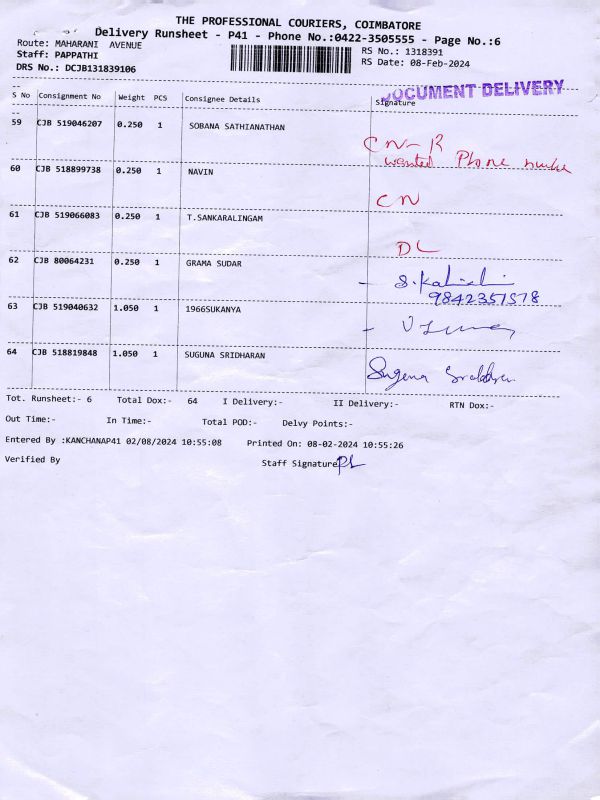 THE PROFESSIONAL COURIERS, COIMBATORE
Delivery Runsheet - P41 - Phone No.:0422-3505555 - Page No.:6
Route: MAHARANI AVENUE
RS No.: 1318391
Staff: PAPPATHI
RS Date: 08-Feb-2024
DRS No.: DCJB131839106
DOCUMENT DELIVERY
S No Consignment No Weight PCS Consignee Details Signature
59 CJB 519046207 0.250 1 SOBANA SATHIANATHAN
CN-R
wanted Phone number
60 CJB 518899738 0.250 1 NAVIN
CN
61 CJB 519066083 0.250 1 T.SANKARALINGAM
DL
62 CJB 80064231 0.250 1 GRAMA SUDAR
9842351578
63 CJB 519040632 1.050 1 1966SUKANYA
64 CJB 518819848 1.050 1 SUGUNA SRIDHARAN
Tot. Runsheet:- 6 Total Dox:- 64 I Delivery:- II Delivery:- RTN Dox:-
Out Time:- In Time:- Total POD:- Delvy Points:-
Entered By :KANCHANAP41 02/08/2024 10:55:08 Printed On: 08-02-2024 10:55:26
Verified By Staff Signature